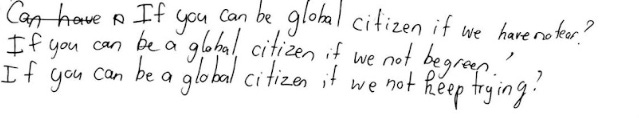 Can have If you can be global citizen if we have no tear?
If you can be a global citizen if we not begreen?
If you can be a global citizen if we not keep trying?